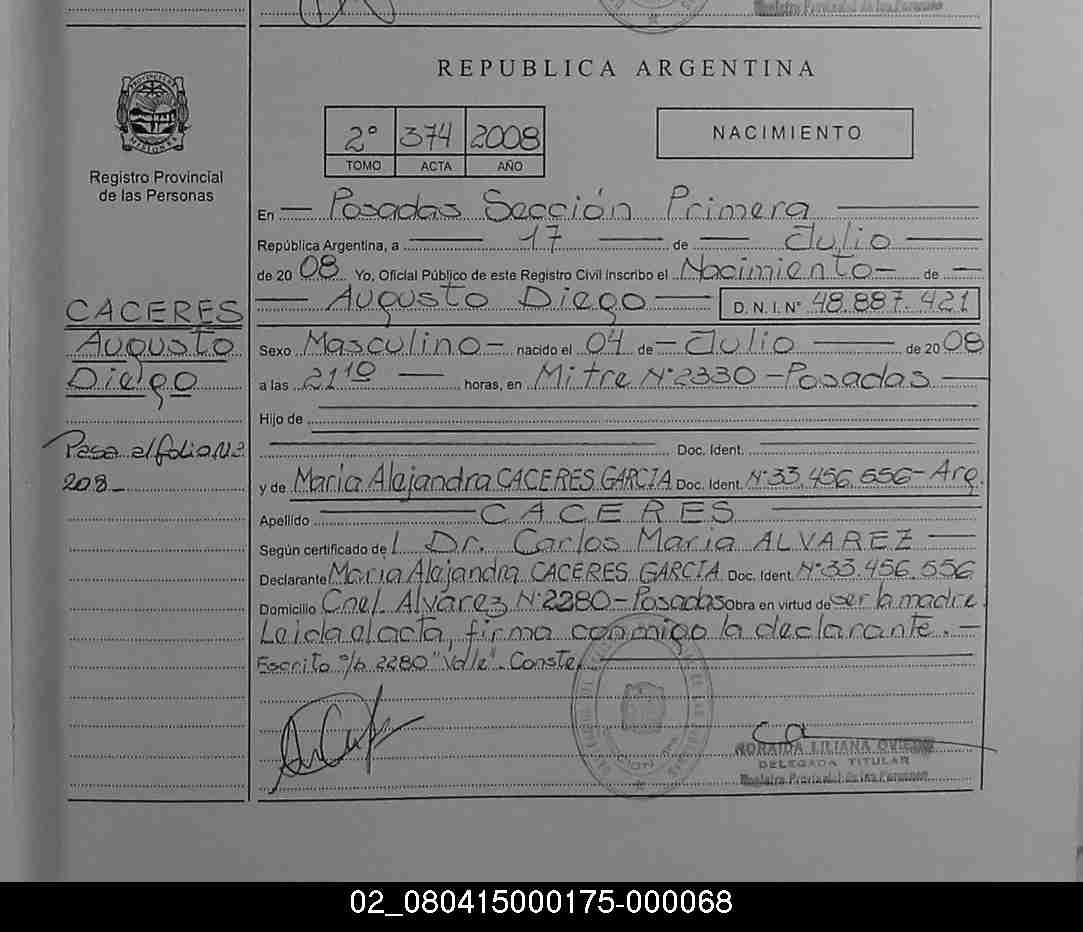 Registro Provincial de las Personas
REPUBLICA ARGENTINA
PROVINCIA DE
MISIONES
Registro Provincial
de las Personas
2° 374 2008
TOMO ACTA AÑO
NACIMIENTO
En — Posadas Sección Primera —
República Argentina, a — 17 — de — Julio —
de 20 08 Yo, Oficial Público de este Registro Civil inscribo el Nacimiento — de —
— Augusto Diego — D. N. I. N° 48.887.421
CACERES
Augusto
Diego
Sexo Masculino — nacido el 04 de — Julio — de 20 08
a las 21 10 — horas, en Mitre N°2330 - Posadas —
Hijo de
Doc. Ident.
Pasa al folio N°
208 _
y de Maria Alejandra CACERES GARCIA Doc. Ident. N°33.456.556 - Arg.
Apellido — CACERES —
Según certificado de l Dr. Carlos Maria ALVAREZ —
Declarante Maria Alejandra CACERES GARCIA Doc. Ident. N°33.456.556
Domicilio Cnel. Alvarez N°2280 - Posadas Obra en virtud de ser la madre.
Leida el acta, firma conmigo la declarante. —
Escrito s/b 2280 "Valle". Conste. —
NORAIDA LILIANA OVIEDO
DELEGADA TITULAR
Registro Provincial de las Personas
02_080415000175-000068